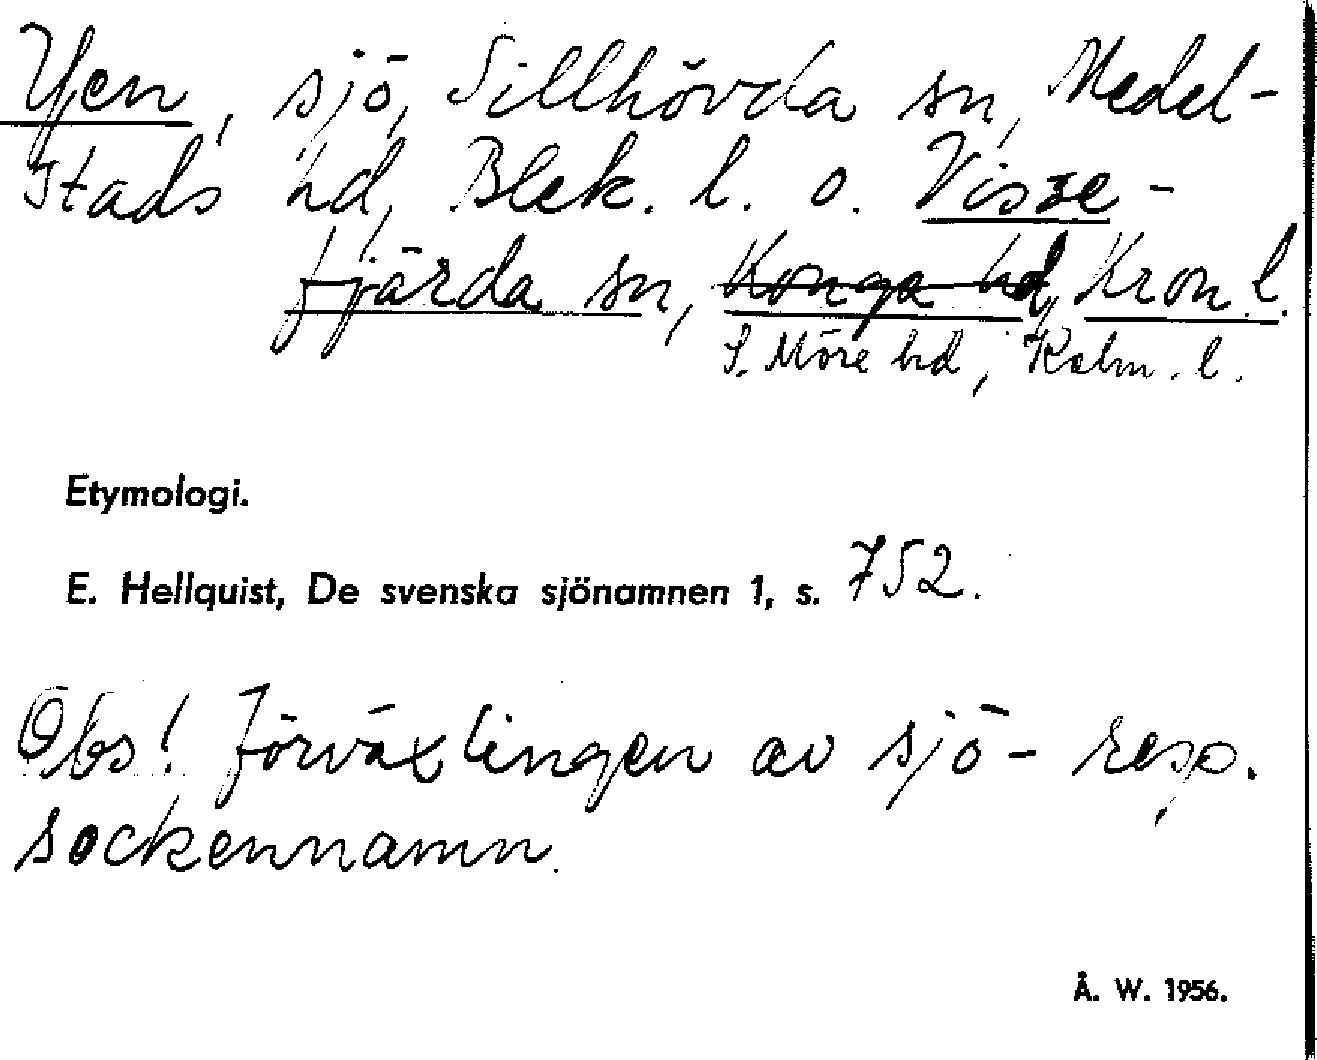 Yen, sjö, Sillhövda sn, Medel-
stads hd, Blek. l. o. Visse-
fjärda sn, Konga hd, Kron. l.
S. Möre hd, Kalm. l.
Etymologi.
E. Hellquist, De svenska sjönamnen 1, s. 752.
Obs! Förväxlingen av sjö- resp.
sockennamn.
Å. W. 1956.